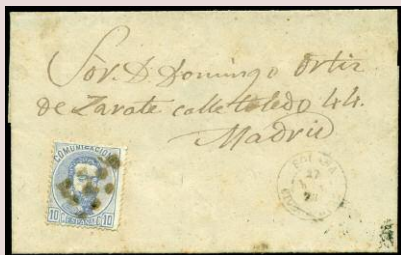 Sor. D. Domingo Ortiz
de Zarate calle toledo 44.
Madrid
COMUNICACIONES
10 ESPAÑA 10